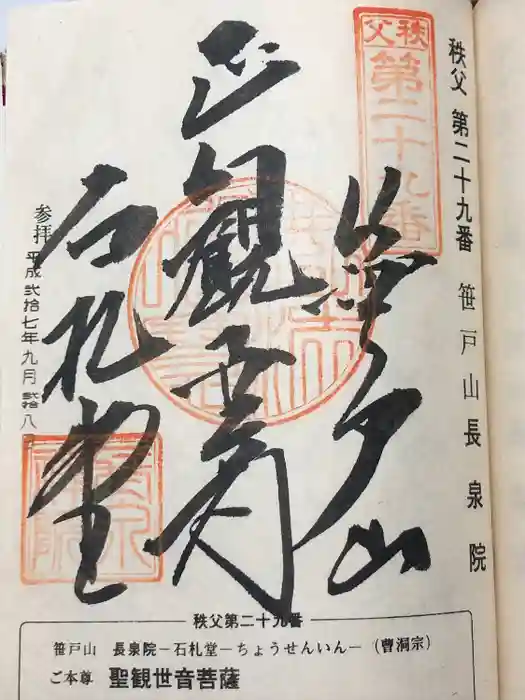 秩父 第二十九番 笹戸山長泉院
秩父
第二十九番
笹戸山
正観世音
石札堂
参拝 平成弐拾七年九月弐拾八
秩父第二十九番
笹戸山 長泉院－石札堂－ちょうせんいん－(曹洞宗)
ご本尊 聖観世音菩薩